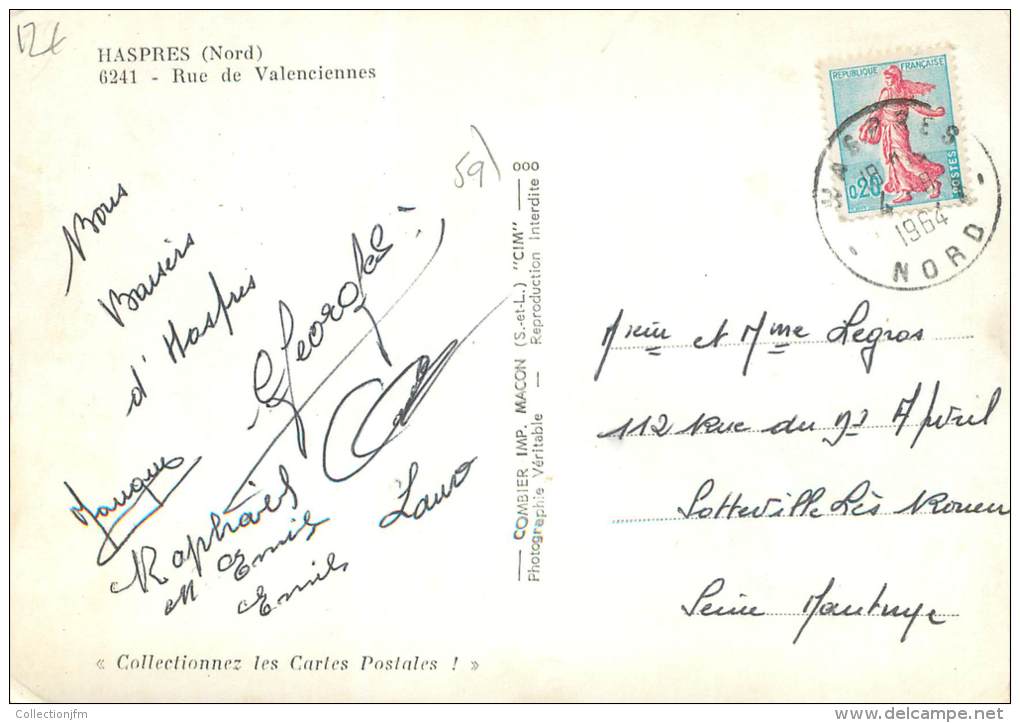 12€
HASPRES (Nord)
6241 - Rue de Valenciennes
REPUBLIQUE FRANÇAISE
0,20
POSTES
HASPRES
18 H
1964
NORD
59
Bons
Baisers
d'Haspres
Georges
Raphaël
M Emile
Emile
COMBIER IMP. MACON (S.-et-L.) "CIM" — ooo
Photographie Véritable — Reproduction Interdite
Mr et Mme Legros
112 Rue du
Sotteville Lès Rouen
Seine Maritime
« Collectionnez les Cartes Postales ! »
Collectionjfm
www.delcampe.net